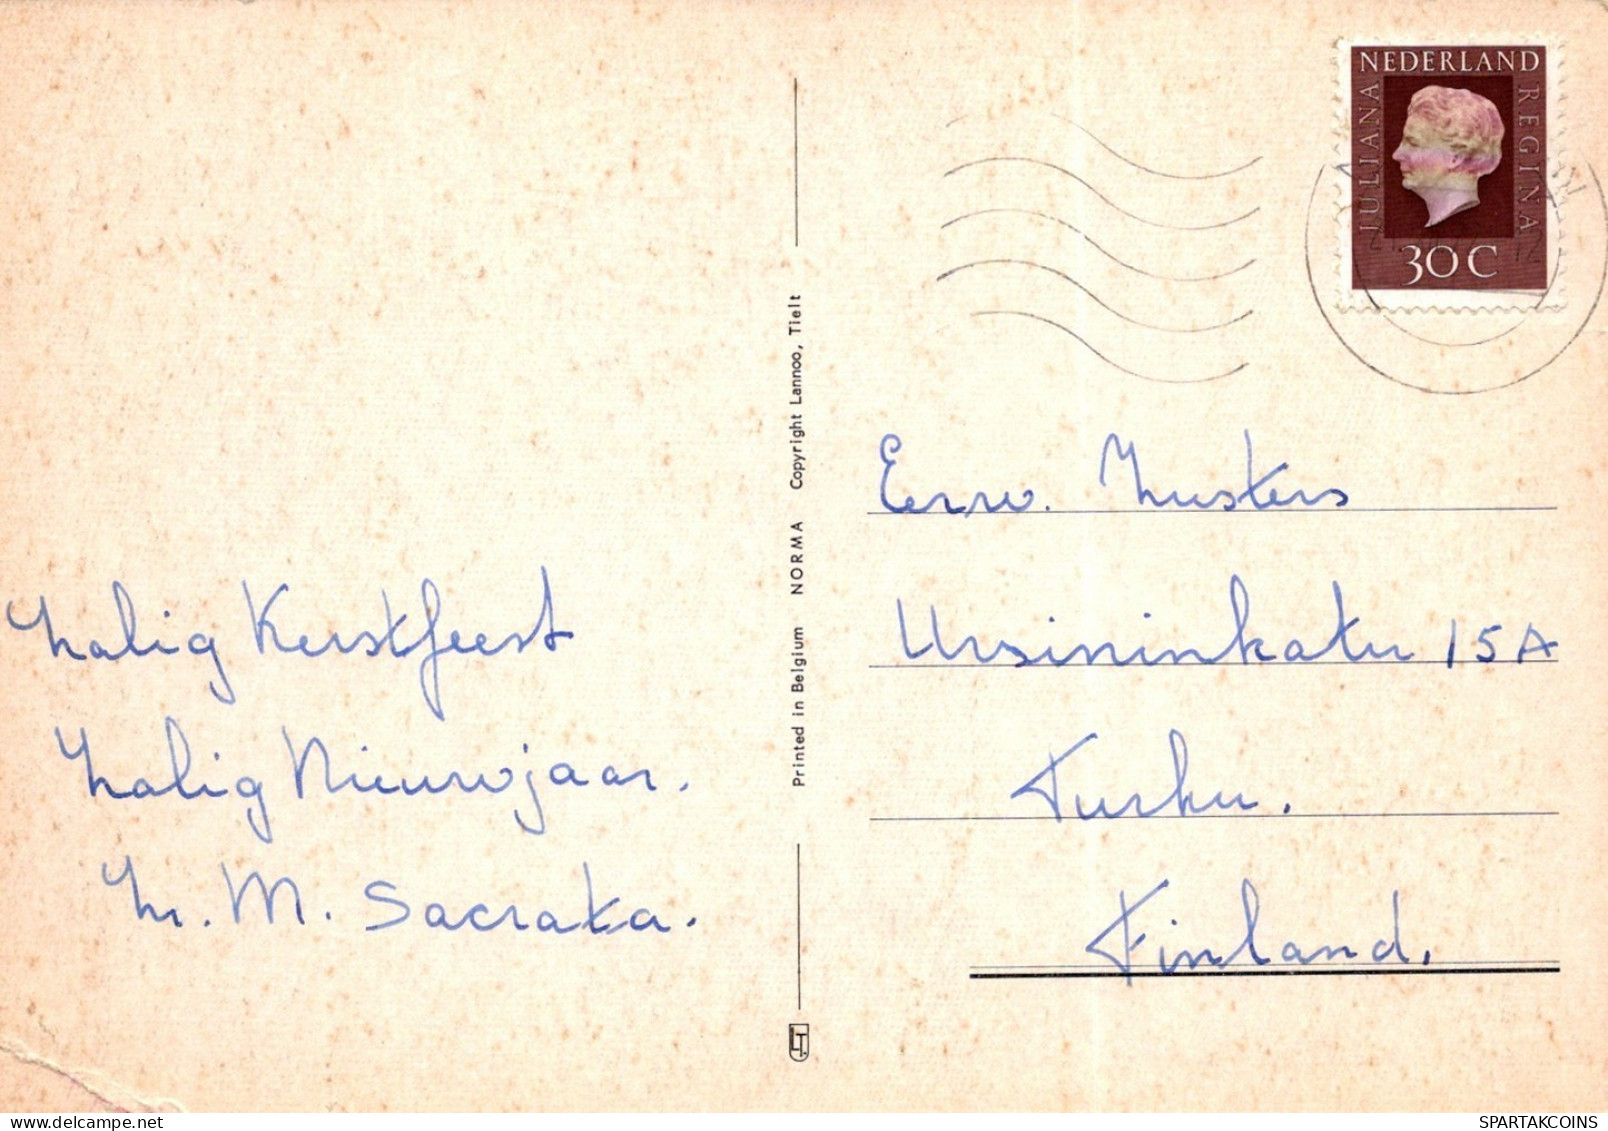 zalig Kerstfeest
zalig Nieuwjaar.
Zr. M. Sacrata.
Printed in Belgium NORMA Copyright Lannoo, Tielt
LT.
NEDERLAND
JULIANA
REGINA
30 C
Eerw. Zusters
Ursininkatu 15A
Turku.
Finland.
SPARTAKCOINS